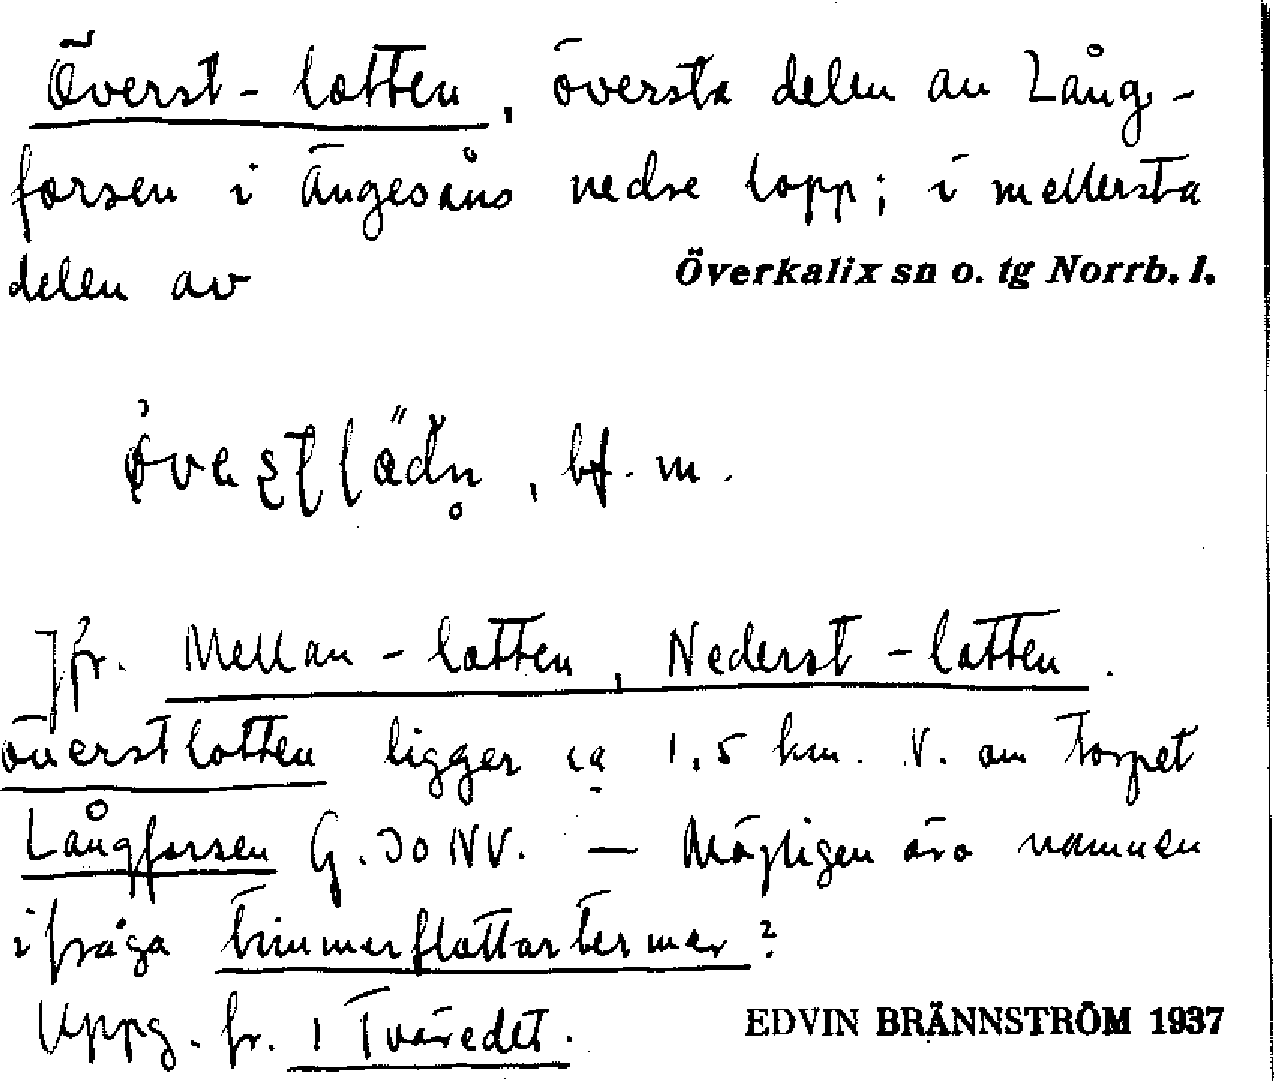 Överst-lotten, översta delen av Lång-
forsen i Ängesåns nedre lopp; i mellersta
delen av Överkalix sn o. tg Norrb. l.
, bf. m.
Jfr. Mellan-lotten, Nederst-lotten.
Överstlotten ligger ca 1,5 km. V. om torpet
Långforsen G. 30 NV. — Möjligen äro namnen
ifråga timmerflottartermer?
Uppg. fr. 1 Tväredet.
EDVIN BRÄNNSTRÖM 1937